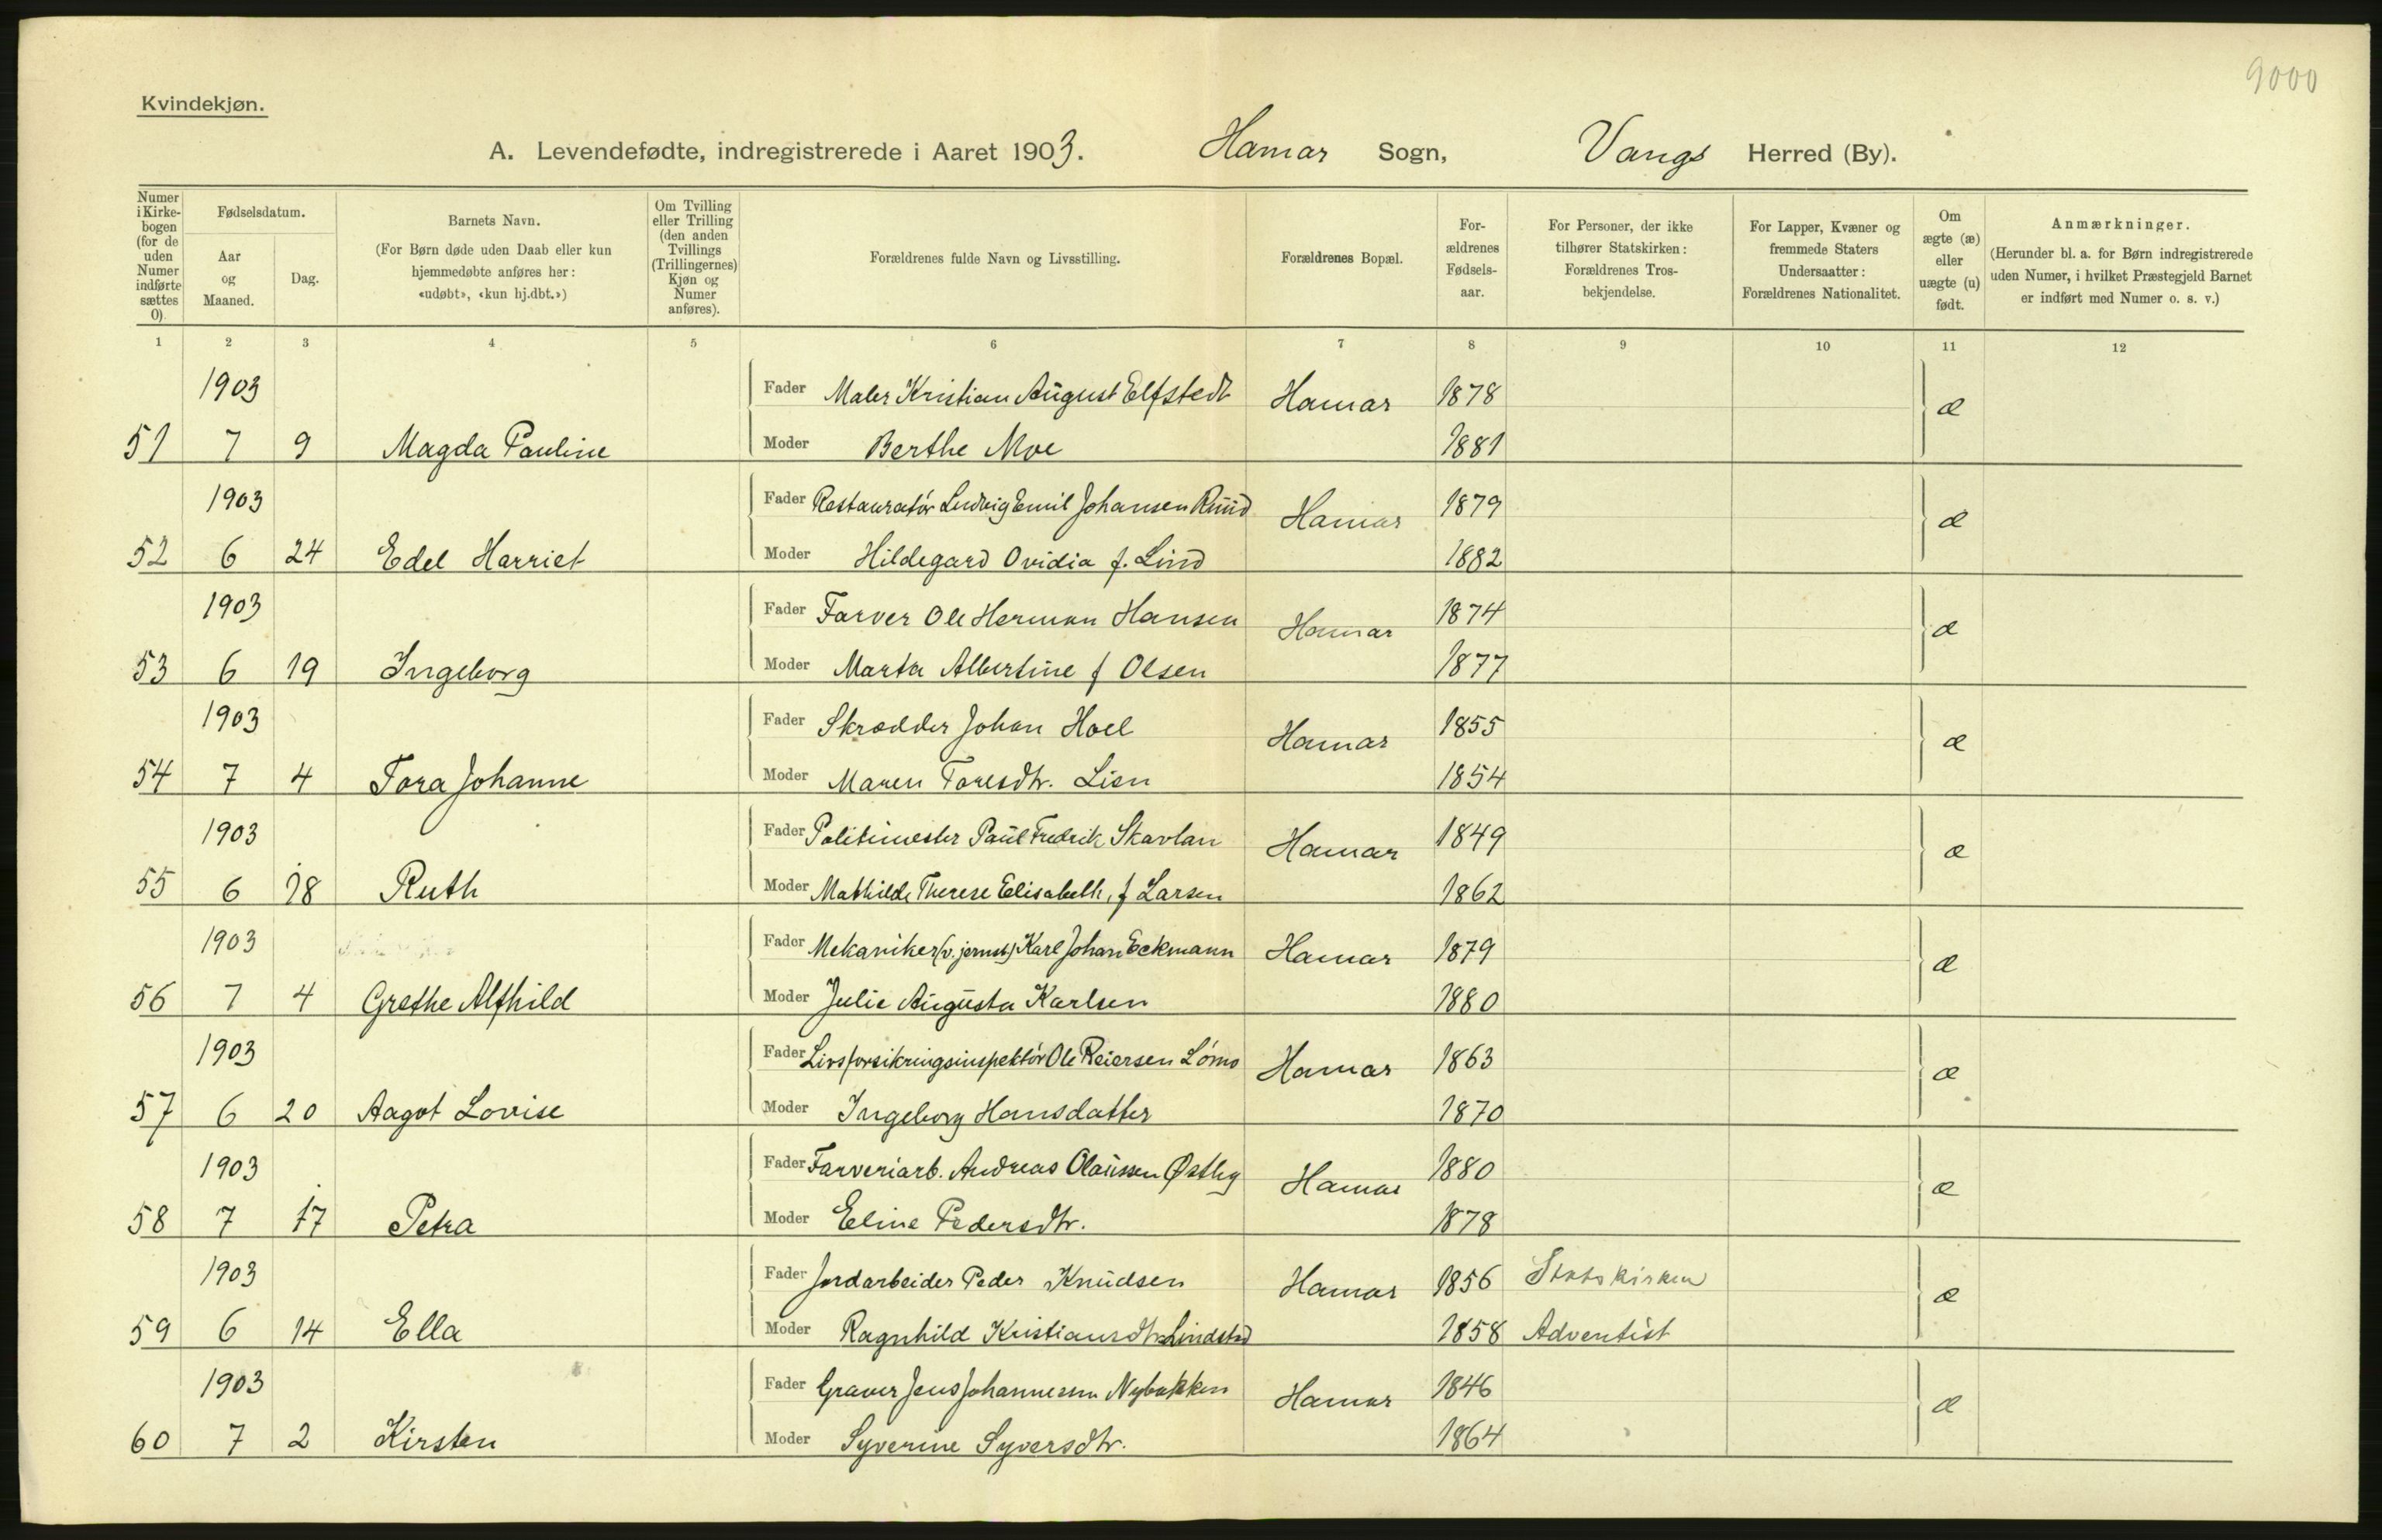 9000
Kvindekjøn.
A. Levendefødte, indregistrerede i Aaret 1903. Hamar Sogn, Vangs Herred (By).
Numer i Kirke-bogen (for de uden Numer indførte sættes 0).
Fødselsdatum.
Aar og Maaned.
Dag.
Barnets Navn.
(For Børn døde uden Daab eller kun hjemmedøbte anføres her: «udøbt», «kun hj.dbt.»)
Om Tvilling eller Trilling (den anden Tvillings (Trillingernes) Kjøn og Numer anføres).
Forældrenes fulde Navn og Livsstilling.
Forældrenes Bopæl.
For-ældrenes Fødsels-aar.
For Personer, der ikke tilhører Statskirken: Forældrenes Tros-bekjendelse.
For Lapper, Kvæner og fremmede Staters Undersaatter: Forældrenes Nationalitet.
Om ægte (æ) eller uægte (u) født.
Anmærkninger.
(Herunder bl. a. for Børn indregistrerede uden Numer, i hvilket Præstegjeld Barnet er indført med Numer o. s. v.)
1 2 3 4 5 6 7 8 9 10 11 12
1903 Fader Maler Kristian August Elfstedt Hamar 1878 æ
51 7 9 Magda Pauline Moder Berthe Moe 1881
1903 Fader Restauratør Ludvig Emil Johansen Ruud Hamar 1879 æ
52 6 24 Edel Harriet Moder Hildegard Ovidia f. Lind 1882
1903 Fader Farver Ole Herman Hansen Hamar 1874 æ
53 6 19 Ingeborg Moder Marta Albertine f Olsen 1877
1903 Fader Skrædder Johan Hoel Hamar 1855 æ
54 7 4 Tora Johanne Moder Maren Toresdtr. Lien 1854
1903 Fader Politimester Paul Fredrik Skavlan Hamar 1849 æ
55 6 18 Ruth Moder Mathilde Therese Elisabeth, f Larsen 1862
1903 Fader Mekaniker (v. jernst) Karl Johan Eckmann Hamar 1879 æ
56 7 4 Grethe Alfhild Moder Julie Augusta Karlsen 1880
1903 Fader Livsforsikringsinspektør Ole Reiersen Lømo Hamar 1863 æ
57 6 20 Aagot Lovise Moder Ingeborg Hansdatter 1870
1903 Fader Farveriarb. Andreas Olaussen Østby Hamar 1880 æ
58 7 17 Petra Moder Eline Pedersdtr. 1878
1903 Fader Jordarbeider Peder Knudsen Hamar 1856 Statskirken æ
59 6 14 Ella Moder Ragnhild Kristiansdtr Lindstad 1858 Adventist
1903 Fader Graver Jens Johannessen Nybakken Hamar 1846 æ
60 7 2 Kirsten Moder Syverine Syversdtr. 1864